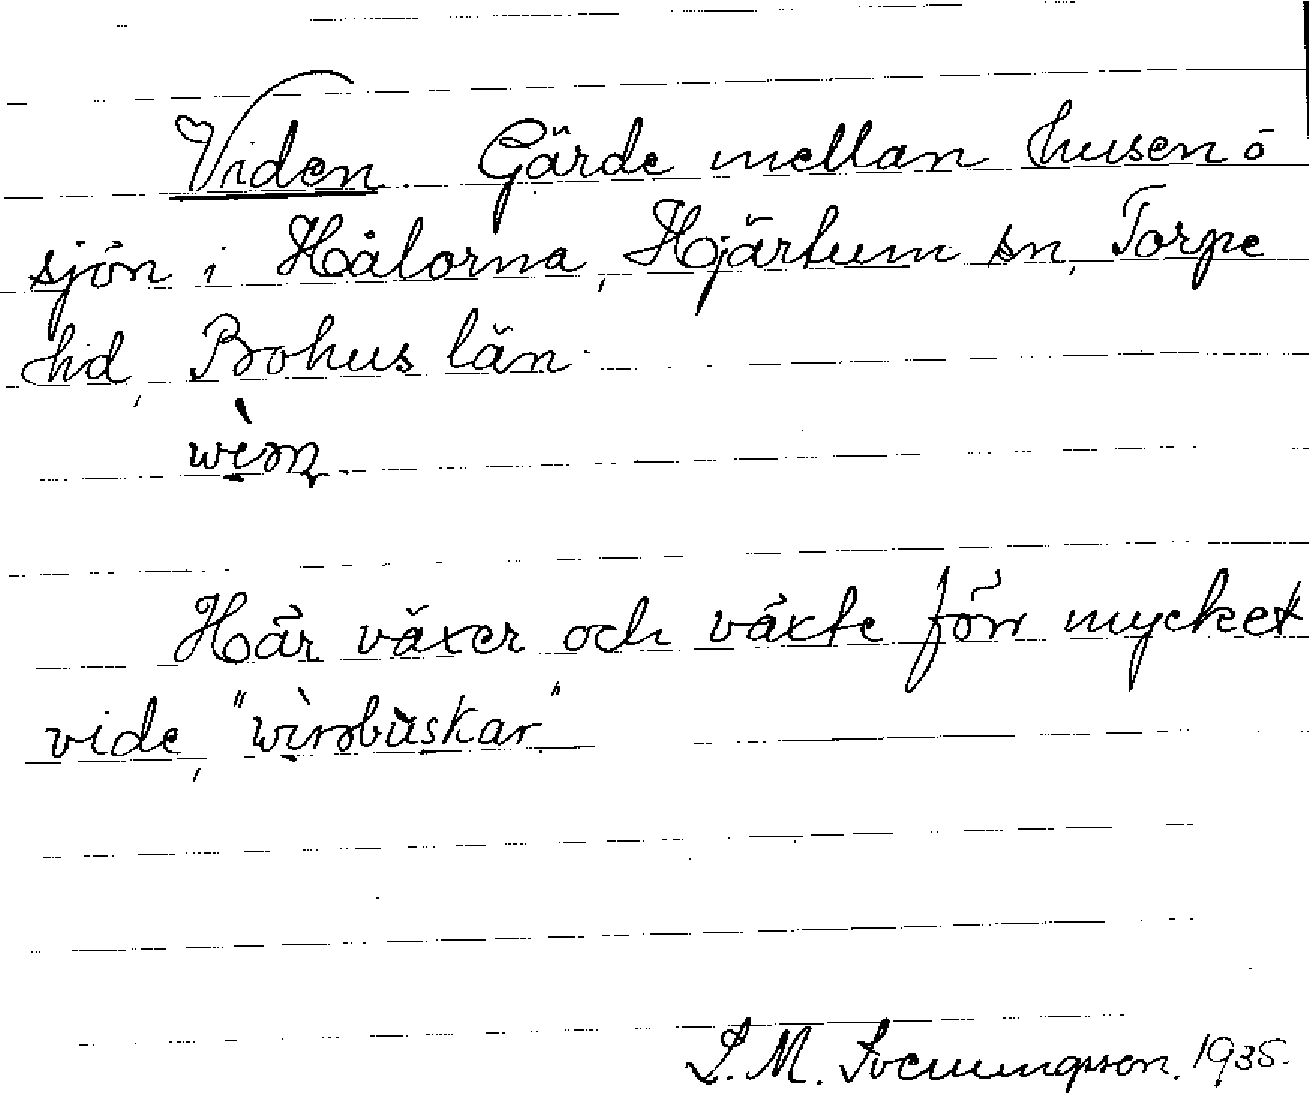 Viden Gärde mellan husen o
sjön i Hålorna, Hjärtum sn, Torpe
hd, Bohus län
Här växer och växte förr mycket
vide,
L. M. Svenungsson. 1935.